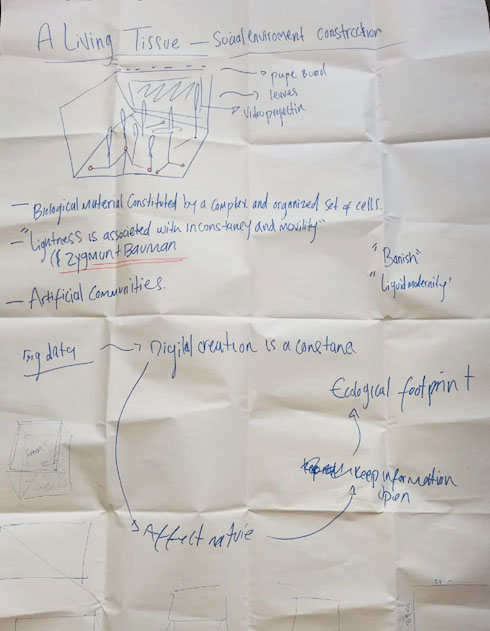 A Living Tissue — Social enviroment construction
→ pupe Board
→ leaves
→ Videoprojectin
— Biological material Constituted by a complex and organized set of cells.
— "Lightness is associated with inconstancy and movility"
Zygmunt Bauman
"Banish"
"Liquid modernity"
— Artificial Communities.
Big data → Digital creation is a constana
Ecological footprint
keep information
open
Affect nature